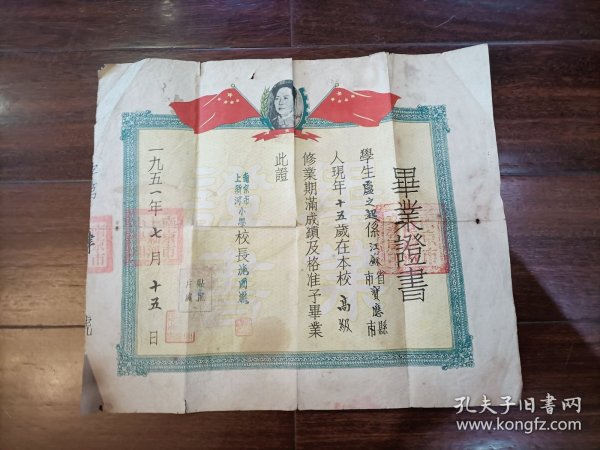 畢業證書
學生盧之超係江蘇省寶應縣
人現年十五歲在本校高級
修業期滿成績及格准予畢業
此證
南京市
上新河小學
校長施
一九五一年七月十五日
孔夫子旧书网
www.kongfz.com